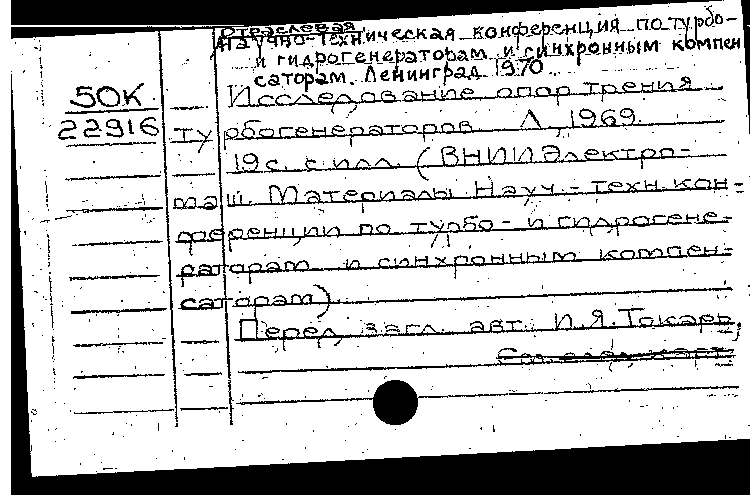 Отраслевая
научно-техническая конференция по турбо-
и гидрогенераторам и синхронным компен
саторам. Ленинград 1970
50К
22916
Исследование опор трения
турбогенераторов. Л., 1969.
19 с. с илл. (ВНИИЭлектро-
маш. Материалы Науч.-техн. кон-
ференции по турбо- и гидрогене-
раторам и синхронным компен-
саторам)
Перед загл. авт.: И.Я. Токарь,
См. след. карт.